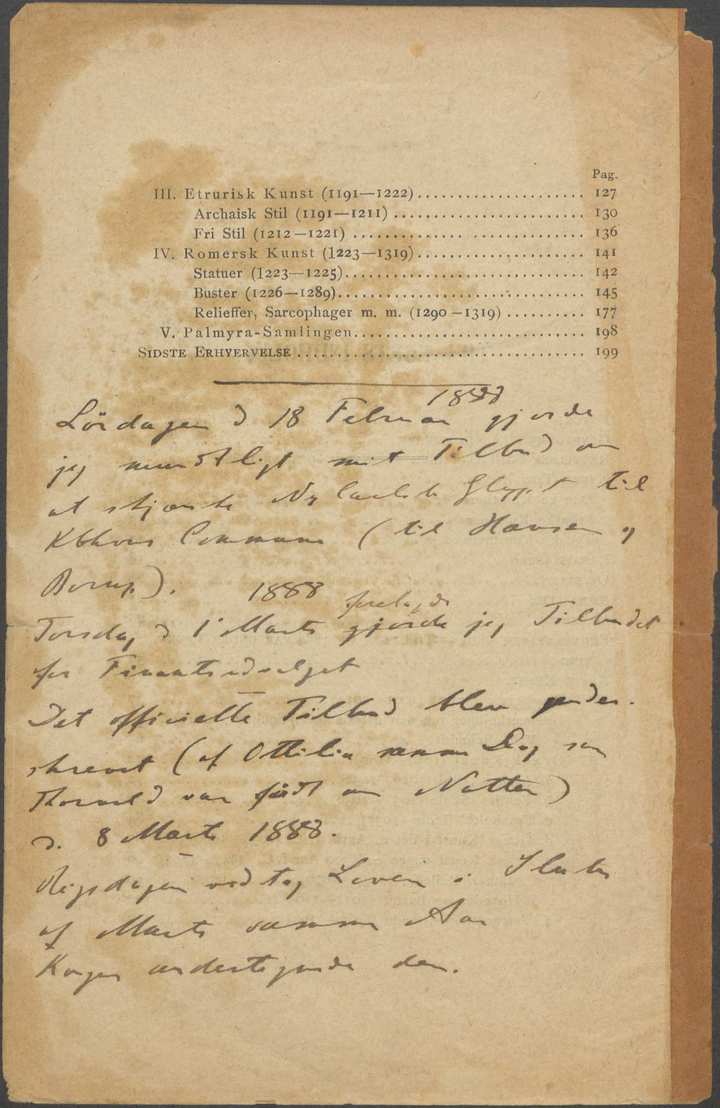 Pag.
III. Etrurisk Kunst (1191—1222) ..................... 127
Archaisk Stil (1191—1211) ........................ 130
Fri Stil (1212—1221) ............................. 136
IV. Romersk Kunst (1223—1319) ..................... 141
Statuer (1223—1225) .............................. 142
Buster (1226—1289) ............................... 145
Relieffer, Sarcophager m. m. (1290—1319) .......... 177
V. Palmyra-Samlingen ............................. 198
SIDSTE ERHVERVELSE ............................... 199
1888
Lördagen d 18 Februar gjorde
jeg mundtligt mit Tilbud om
at skjænke Ny Carlsb Glypt til
Kbhvns Commune (til Hansen og
Borup).
1888
forelagde
Torsdag d 1' Marts gjorde jeg Tilbudet
for Finantsudvalget
Det officielle Tilbud blev under-
skrevet (af Ottilia samme Dag som
Thorvald var født om Natten)
d. 8 Marts 1888.
Rigsdagen vedtog Loven i Slutn
af Marts samme Aar
Kongen undertegnede den.